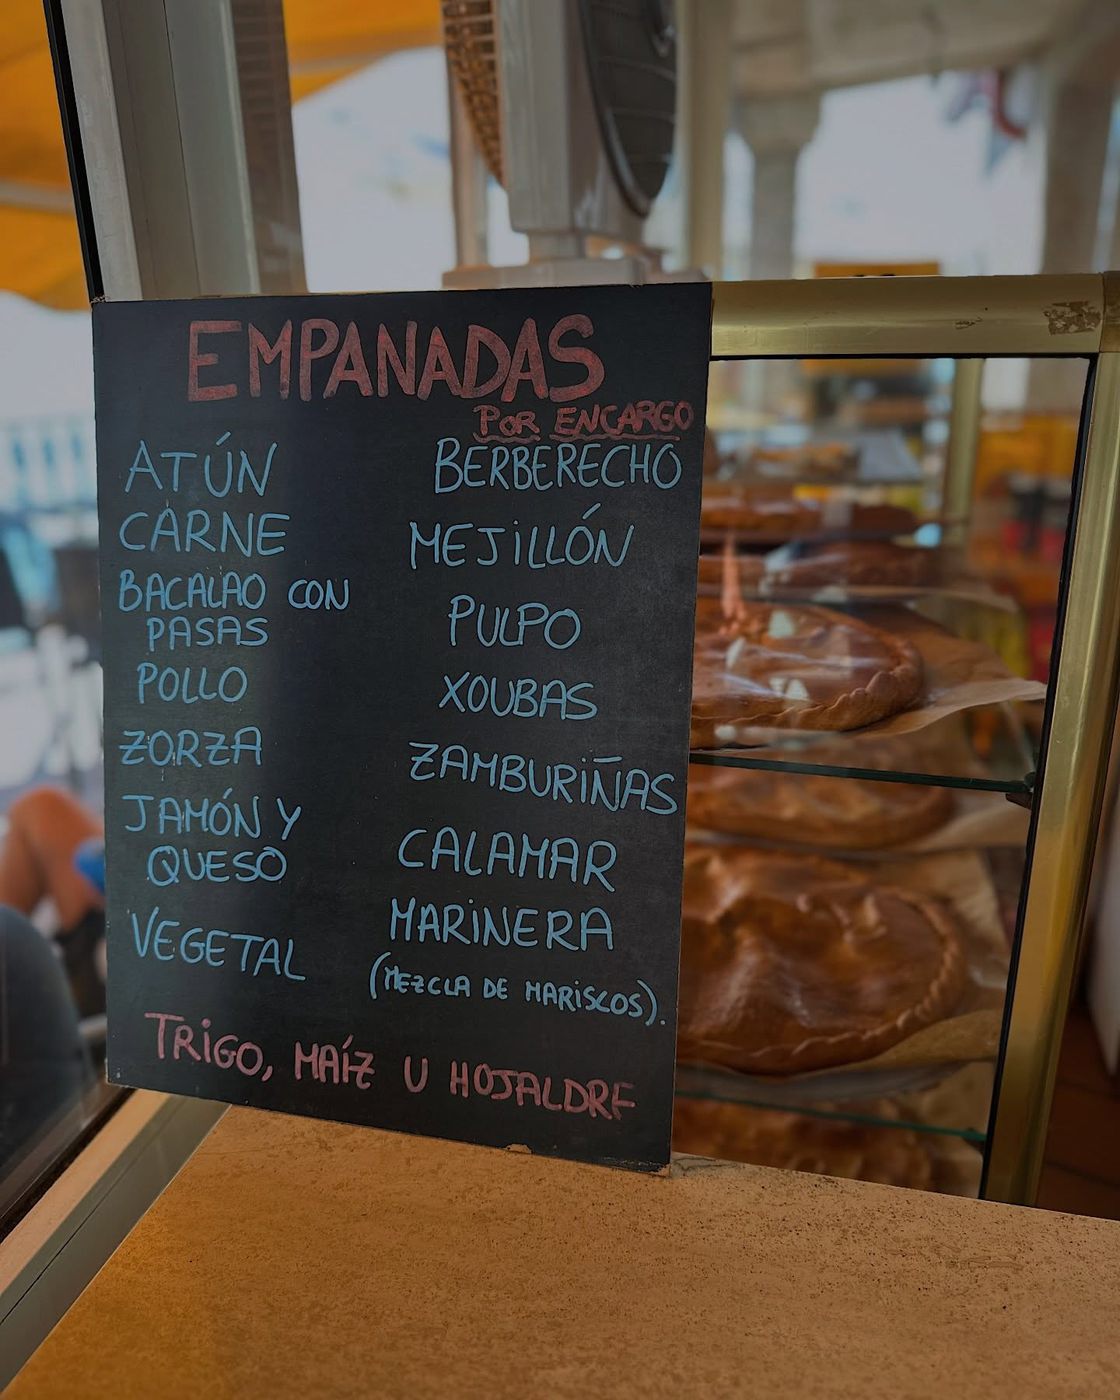 EMPANADAS
POR ENCARGO
ATÚN
CARNE
BACALAO CON
PASAS
POLLO
ZORZA
JAMÓN Y
QUESO
VEGETAL
BERBERECHO
MEJILLÓN
PULPO
XOUBAS
ZAMBURIÑAS
CALAMAR
MARINERA
(MEZCLA DE MARISCOS).
TRIGO, MAÍZ U HOJALDRE